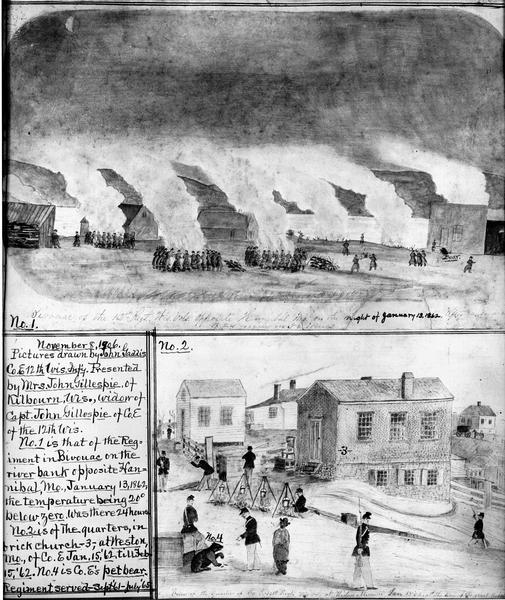 Bear.
Bivouac of the 12th Regt. Wis. Vols opposite Hannibal Mo. on the night of January 13. 1862.
No. 1.
November 8, 1906.
Pictures drawn by John Gaddis
Co. E 12th Wis. Infy. Presented
by Mrs. John Gillespie. of
Kilbourn. Wis., widow of
Capt. John Gillespie. of Co. E
of the 12th Wis.
No. 1 is that of the Reg-
iment in Bivouac on the
river bank opposite Han-
nibal, Mo, January 13, 1862,
the temperature being 20°
below zero. Was there 24 hours
No. 2 is of the quarters, in
brick church -3- at Weston,
Mo., of Co. E Jan. 15, '62. till Feb.
15, '62. No. 4 is Co. E's pet bear.
Regiment served Sept. '61 - July '65
No. 2.
-3-
No 4
View of the Quarters of Co. E